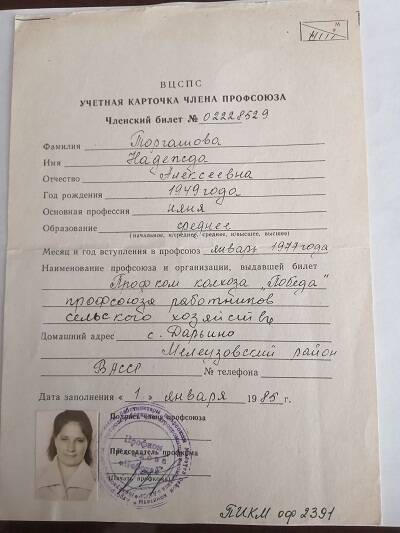 ВЦСПС
УЧЕТНАЯ КАРТОЧКА ЧЛЕНА ПРОФСОЮЗА
Членский билет № 02228529
Фамилия Торгашова
Имя Надежда
Отчество Алексеевна
Год рождения 1949 года
Основная профессия няня
Образование среднее
(начальное, н/среднее, среднее, н/высшее, высшее)
Месяц и год вступления в профсоюз январь 1977 года
Наименование профсоюза и организации, выдавшей билет
Профком колхоза „Победа"
профсоюза работников
сельского хозяйства
Домашний адрес с. Дарьино
Мелеузовский район
БАССР № телефона
Дата заполнения « 1 » января 1985 г.
Подпись члена профсоюза
Председатель профкома
(печать профкома)
ПИКМ оф 2391